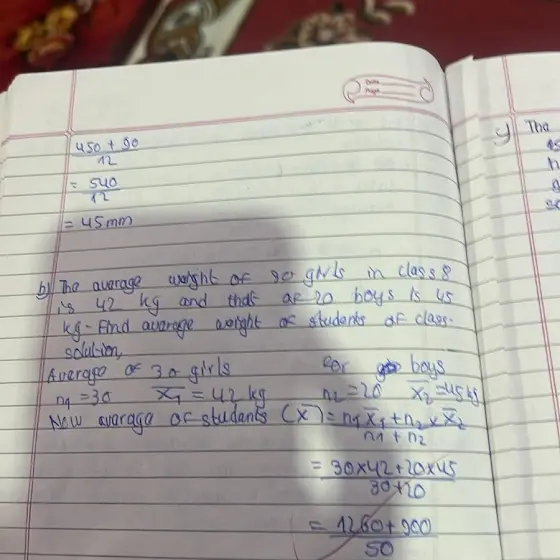 Date
Page
450 + 90
12
= 540
12
= 45mm
b) The average weight of 30 girls in class 8
is 42 kg and that of 20 boys is 45
kg. Find average weight of students of class.
solution,
Average of 30 girls For boys
n₁ = 30 x̄₁ = 42 kg n₂ = 20 x̄₂ = 45 kg
Now average of students (x̄) = n₁x̄₁ + n₂ × x̄₂
n₁ + n₂
= 30×42+20×45
30+20
= 1260+900
50
c) The